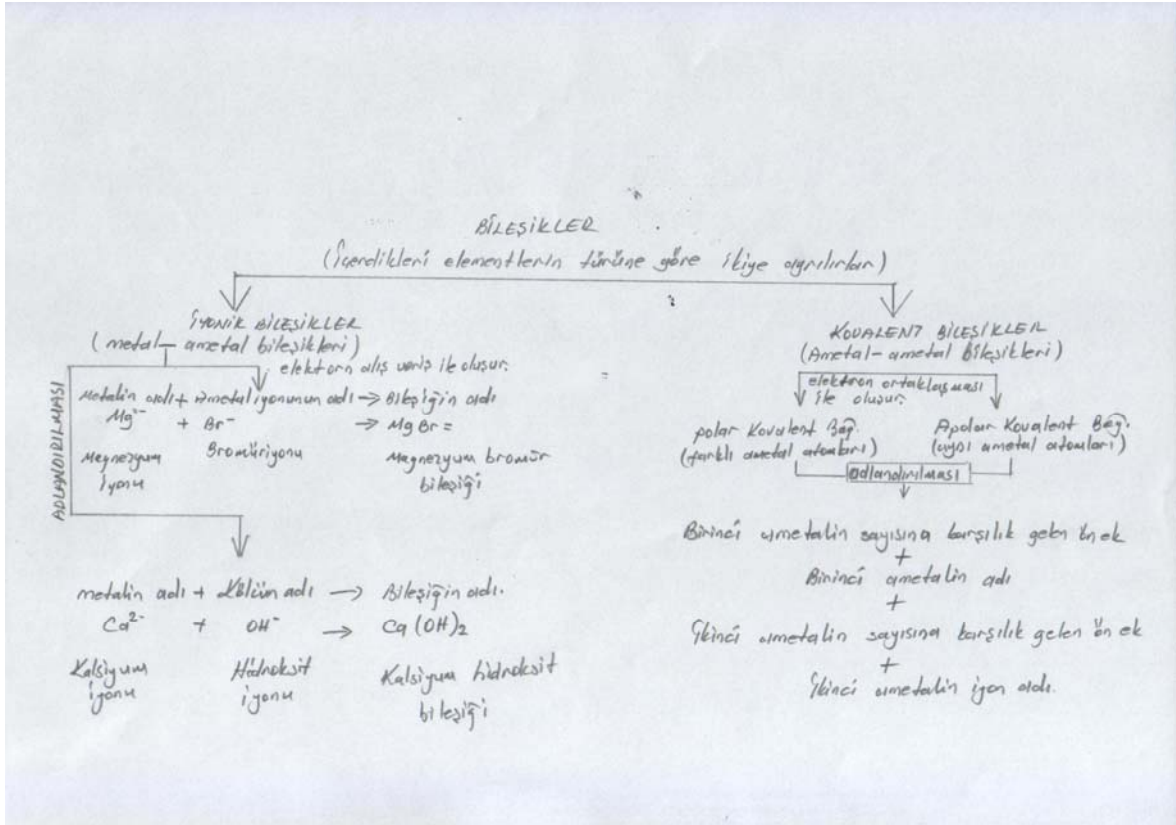 BİLEŞİKLER
(İçerdikleri elementlerin türüne göre ikiye ayrılırlar)
İYONİK BİLEŞİKLER
(metal – ametal bileşikleri)
elektorn alış veriş ile oluşur.
ADLANDIRILMASI
Metalin adı + Ametal iyonunun adı → Bileşiğin adı
Mg²⁻ + Br⁻ → MgBr =
Magnezyum iyonu
Bromür iyonu
Magnezyum bromür
bileşiği
metalin adı + Kölüm adı → Bileşiğin adı.
Ca²⁻ + OH⁻ → Ca(OH)₂
Kalsiyum iyonu
Hidroksit iyonu
Kalsiyum hidroksit
bileşiği
KOVALENT BİLEŞİKLER
(Ametal – ametal Bileşikleri)
elektron ortaklaşması
ile oluşur.
polar Kovalent Bağ.
(farklı ametal atomları)
Apolar Kovalent Bağ.
(aynı ametal atomları)
adlandırılması
Birinci ametalin sayısına karşılık gelen ön ek
+
Birinci ametalin adı
+
İkinci ametalin sayısına karşılık gelen ön ek
+
İkinci ametalin iyon adı.